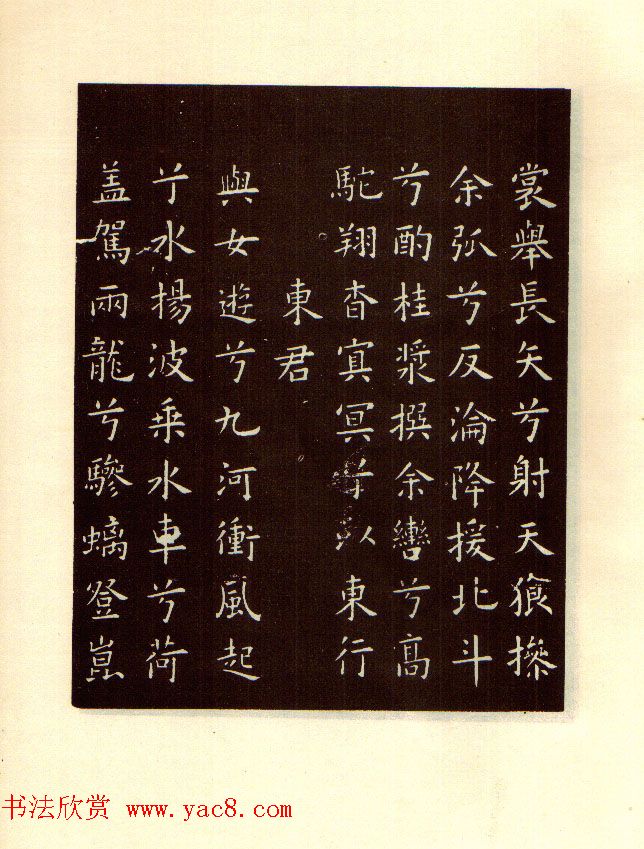 裳舉長矢兮射天狼操
余弧兮反淪降援北斗
兮酌桂漿撰余轡兮高
駝翔杳冥冥兮以東行
東君
與女遊兮九河衝風起
兮水揚波乘水車兮荷
蓋駕兩龍兮驂螭登崑
书法欣赏 www.yac8.com